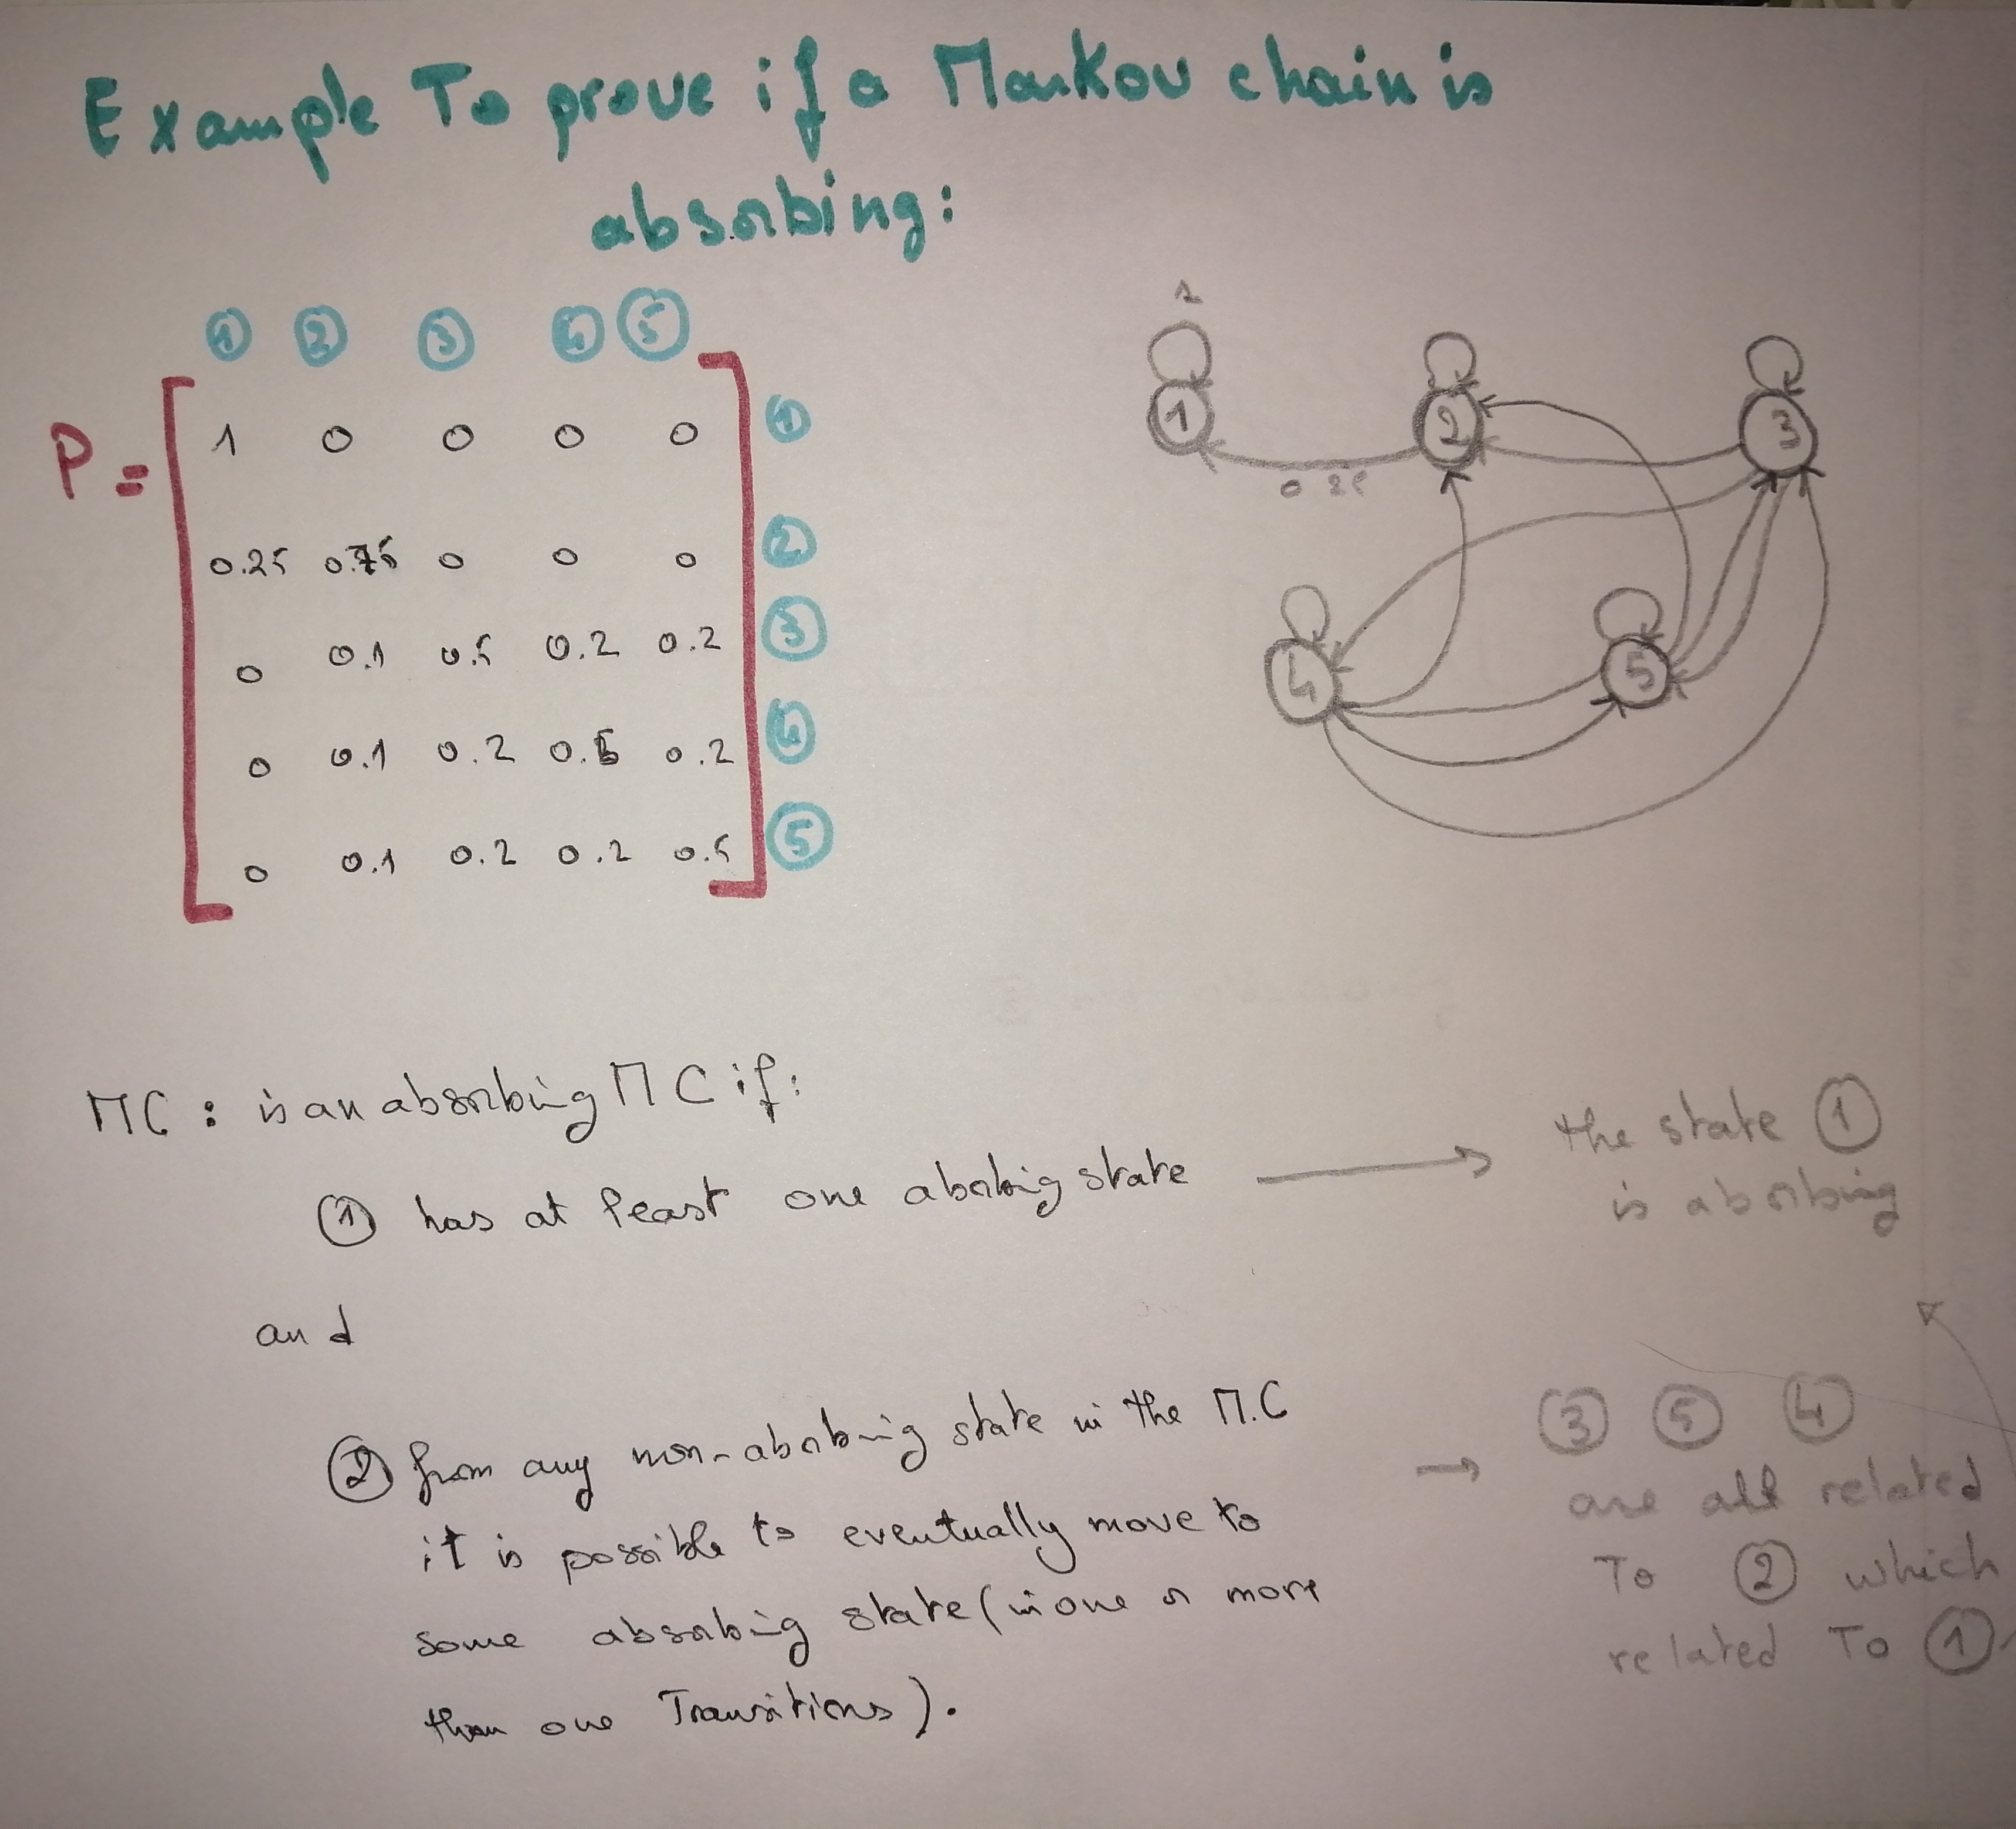 Example To prove if a Markov chain is
absorbing:
1 2 3 4 5
P =
1 0 0 0 0 1
0.25 0.75 0 0 0 2
0 0.1 0.5 0.2 0.2 3
0 0.1 0.2 0.5 0.2 4
0 0.1 0.2 0.2 0.5 5
1
1 2 3
0.25
4 5
MC : is an absorbing MC if:
1 has at least one absorbing state
the state 1
is absorbing
and
2 from any non-absorbing state in the M.C
it is possible to eventually move to
some absorbing state (in one or more
than one Transitions).
3 5 4
are all related
To 2 which
related To 1